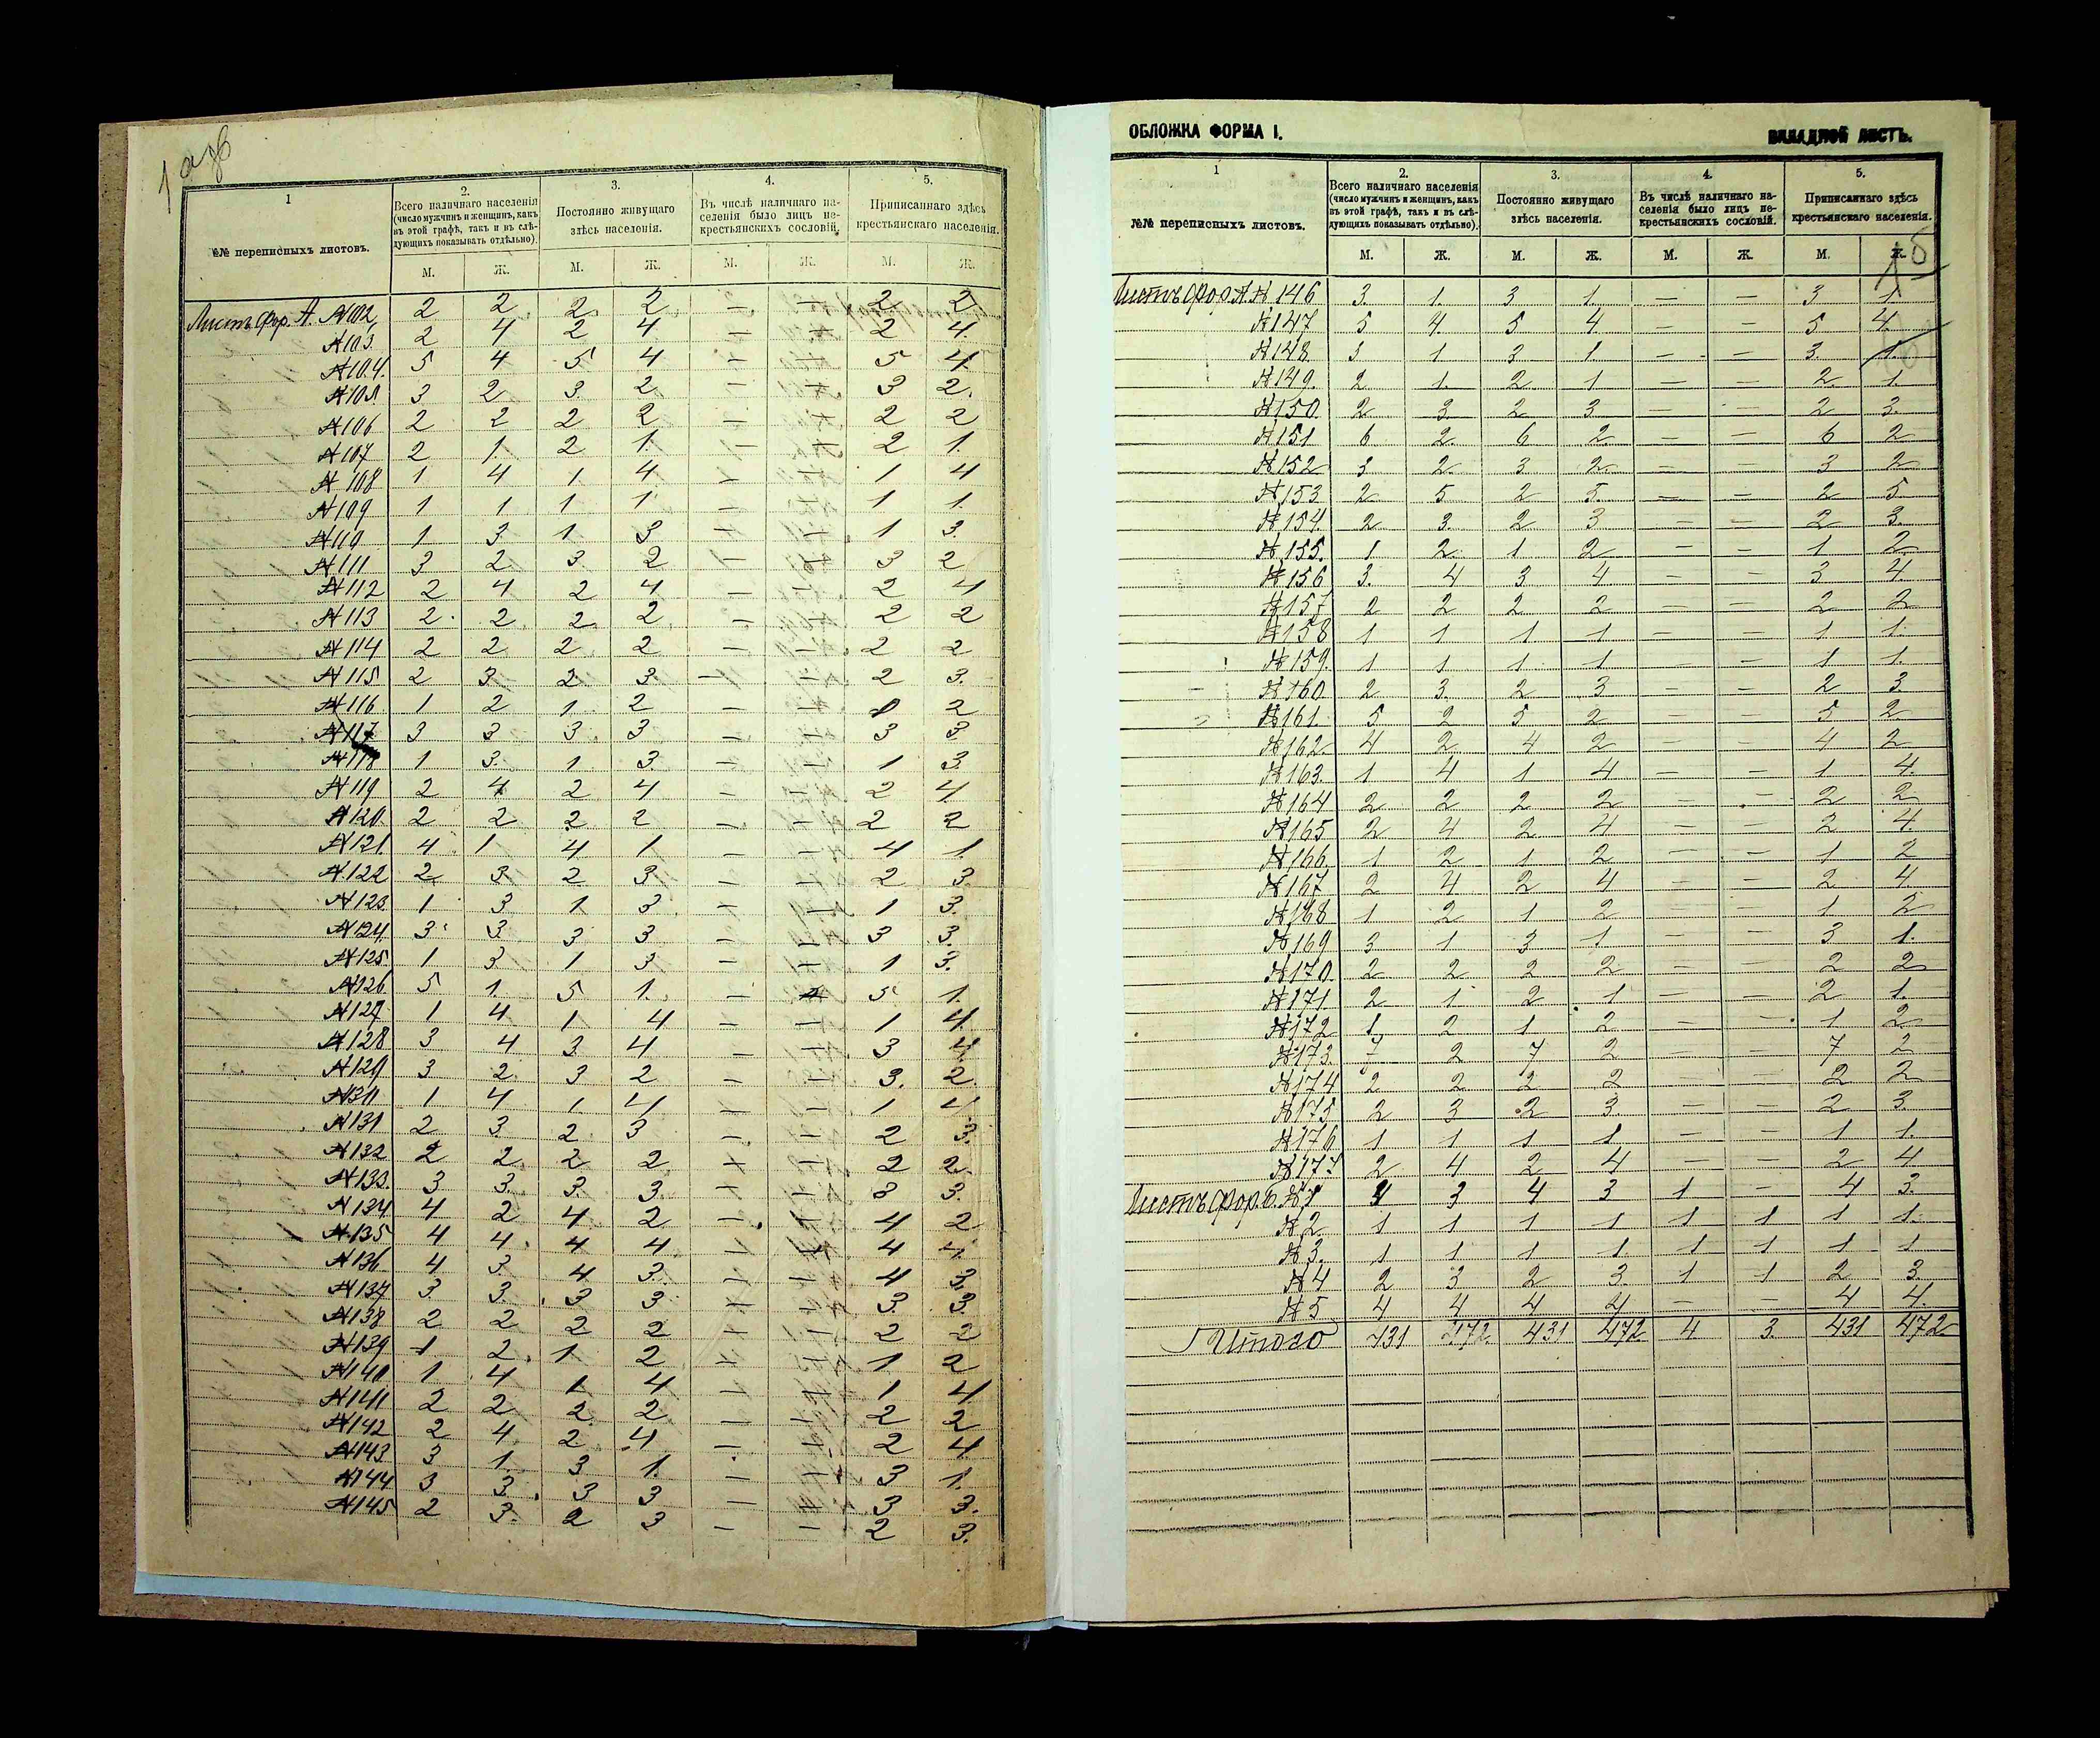 1 2. 3. 4. 5.
№№ переписныхъ листовъ.
Всего наличнаго населенія
(число мужчинъ и женщинъ, какъ
въ этой графѣ, такъ и въ слѣ-
дующихъ показывать отдѣльно).
Постоянно живущаго
здѣсь населенія.
Въ числѣ наличнаго на-
селенія было лицъ не-
крестьянскихъ сословій.
Приписаннаго здѣсь
крестьянскаго населенія.
М. Ж. М. Ж. М. Ж. М. Ж.
Листъ фор. А. №102 2 2 2 2 — — 2 2
№103. 2 4 2 4 — — 2 4
№104. 5 4 5 4 — — 5 4
№105. 3 2 3 2 — — 3 2.
№106 2 2 2 2 — — 2 2
№107 2 1 2 1. — — 2 1.
№108 1 4 1 4 — — 1 4
№109 1 1 1 1 — — 1 1.
№110 1 3 1 3 — — 1 3.
№111 3 2 3 2 — — 3 2
№112 2 4 2 4 — — 2 4
№113 2 2 2 2 — — 2 2
№114 2 2 2 2 — — 2 2
№115 2 3 2 3 — — 2 3.
№116 1 2 1 2 — — 1 2
№117 3 3 3 3 — — 3 3.
№118 1 3 1 3 — — 1 3.
№119 2 4 2 4 — — 2 4
№120. 2 2 2 2 — — 2 2
№121. 4 1 4 1 — — 4 1.
№122 2 3 2 3 — — 2 3.
№123. 1 3 1 3 — — 1 3.
№124. 3 3 3 3 — — 3 3.
№125. 1 3 1 3 — — 1 3.
№126. 5 1. 5 1. — — 5 1.
№127. 1 4 1 4 — — 1 4.
№128 3 4 3 4 — — 3 4
№129 3 2 3 2 — — 3. 2.
№130 1 4 1 4 — — 1 4
№131 2 3 2 3 — — 2 3.
№132 2 2 2 2 — — 2 2.
№133. 3 3. 3 3. — — 3 3.
№134. 4 2 4 2 — — 4 2
№135 4 4 4 4 — — 4 4.
№136 4 3 4 3 — — 4 3.
№137 3 3. 3 3 — — 3. 3.
№138 2 2 2 2 — — 2 2
№139 1 2 1 2 — — 1. 2
№140 1 4 1 4 — — 1 4
№141 2 2 2 2 — — 2 2
№142 2 4 2 4 — — 2 4
№143 3 1 3 1. — — 3 1.
№144 3 3 3 3 — — 3 3.
№145 2 3. 2 3 — — 2 3.
ОБЛОЖКА ФОРМА I. ВКЛАДНОЙ ЛИСТЪ.
1 2. 3. 4. 5.
№№ переписныхъ листовъ.
Всего наличнаго населенія
(число мужчинъ и женщинъ, какъ
въ этой графѣ, такъ и въ слѣ-
дующихъ показывать отдѣльно).
Постоянно живущаго
здѣсь населенія.
Въ числѣ наличнаго на-
селенія было лицъ не-
крестьянскихъ сословій.
Приписаннаго здѣсь
крестьянскаго населенія.
М. Ж. М. Ж. М. Ж. М. Ж.
Листъ фор. А. №146 3 1. 3 1. — — 3 1.
№147 5 4 5 4 — — 5 4.
№148 3 1 3 1 — — 3. 1.
№149. 2 1. 2 1 — — 2. 1.
№150. 2 3 2 3 — — 2 3.
№151 6 2 6 2 — — 6 2
№152 3 2 3 2 — — 3 2
№153 2 5 2 5 — — 2 5
№154. 2 3 2 3 — — 2 3.
№155. 1 2 1 2 — — 1 2
№156 3. 4 3 4 — — 3. 4.
№157 2 2 2 2 — — 2 2
№158 1 1 1 1 — — 1 1.
№159. 1 1 1 1 — — 1 1.
№160 2 3 2 3 — — 2 3.
№161 5 2 5 2 — — 5 2.
№162. 4 2 4 2 — — 4 2
№163. 1 4 1 4 — — 1 4.
№164 2 2 2 2 — — 2 2
№165 2 4 2 4 — — 2 4.
№166. 1 2 1 2 — — 1 2
№167 2 4 2 4 — — 2 4.
№168 1 2 1 2 — — 1 2
№169 3 1 3 1 — — 3 1.
№170. 2 2 2 2 — — 2 2
№171. 2 1 2 1 — — 2 1.
№172 1 2 1 2 — — 1 2
№173. 7 2 7 2 — — 7 2
№174 2 2 2 2 — — 2 2
№175 2 3 2 3 — — 2 3.
№176 1 1 1 1 — — 1 1.
№177 2 4 2 4 — — 2 4
Листъ фор. Б. №1 4 3 4 3 1 — 4 3.
№2. 1 1 1 1 1 1 1 1.
№3. 1 1 1 1. 1 1 1 1
№4 2 3 2 3. 1 1 2 3.
№5 4 4 4 4 — — 4 4.
Итого 431 472. 431 472 4 3. 431 472